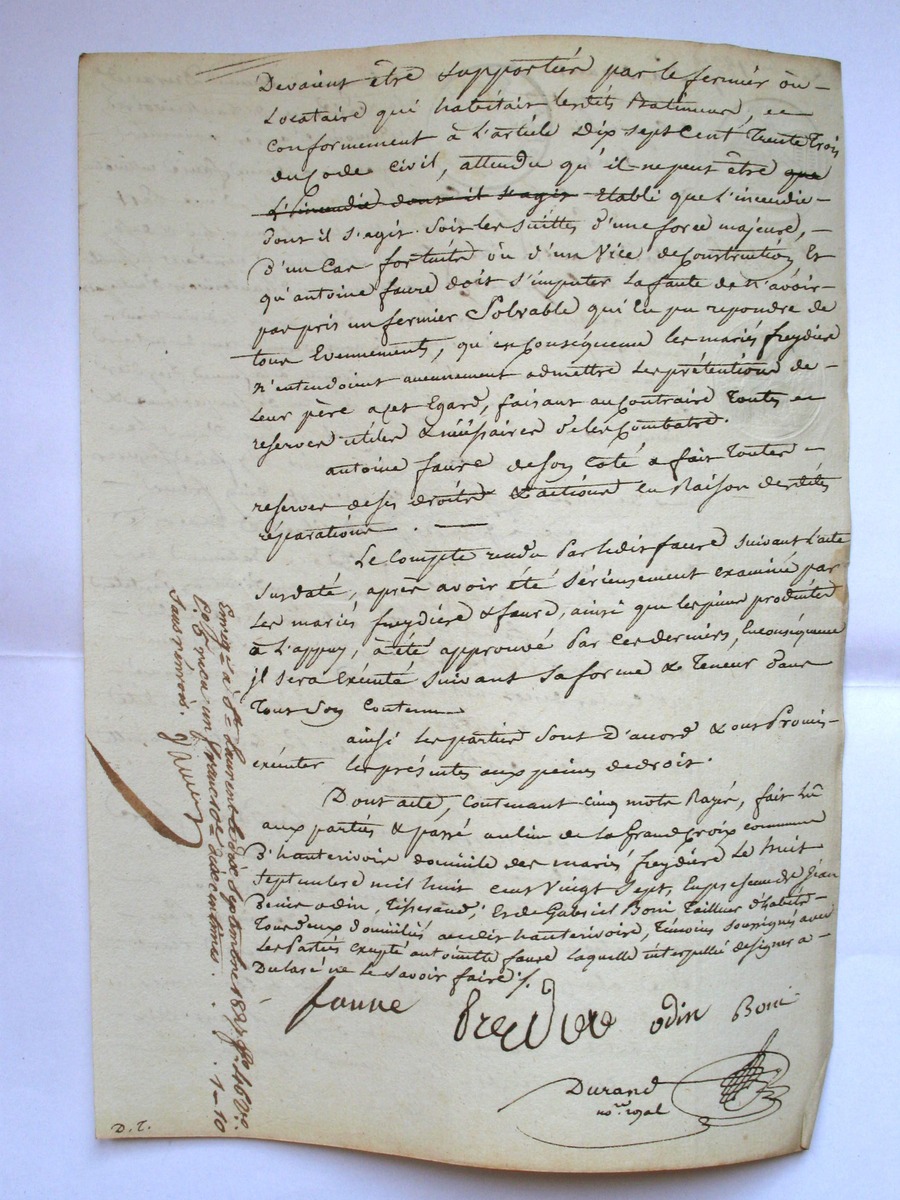 Devaient être Supportées par le fermier où
Locataire qui habitait lesdits Batimens, en
Conformement à L'article Dix Sept Cent Trente Trois
du Code Civil, attendu qu'il ne peut être que
L'incendie dont il s'agit Etabli que L'incendie
Dont il S'agit Soit les Suittes d'une force majeure,
D'un Cas fortuite où d'un Vice de Construction Et
qu'antoine faure doit S'imputer La faute de n'avoir
pas pris un fermier Solvable qui Eu pu repondre de
tous Evennements, qu'en Conséquence les mariés freydière
N'entendoient aucunnement admettre Les prétentions de
Leur père a cet Egard, faisant au Contraire Toutes
reserves utiles & nécéssaires de les Combatre.
antoine faure de Son Coté a fait Toutes
reserves de Ses droits & actions En Raison desdites
réparations.
Le Compte rendu Par ledit faure Suivant L'acte
Susdaté, après avoir été Sérieusement examiné par
Les mariés freydière & faure, ainsi que les pièces produites
à L'appuy, a été approuvé Par Ces derniers, En conséquence
jl Sera Exécuté Suivant Sa forme & Teneur dans
Tout Son Contenu
ainsi les parties Sont D'accord & ont Promis
exécuter les présentes aux peines de droit.
Dont acte, Contenant Cinq mots Rayés, fait Lû
aux parties & passé au lieu de La Grand Croix commune
D'hauterivoire domicile des mariés freydière Le huit
Septembre mil huit cent Vingt Sept, En présence de Jéan
Denis odin, Tisserand, Et de Gabriel Boni Tailleur d'habits
Tous deux domiciliés audit hauterivoire, Témoins Soussignés avec
Les Parties excepté antoinette faure Laquelle interpellée de signer a
Déclaré ne le Savoir faire ./.
faure Freydiere odin Boni
Durand
no.re royal
Enreg.é à S.t Laurent le dix Septembre 1827 f.o 46 V.o
C. 5 reçu un franc & dix centimes. 1 - 10
Sans renvois.
D. T.